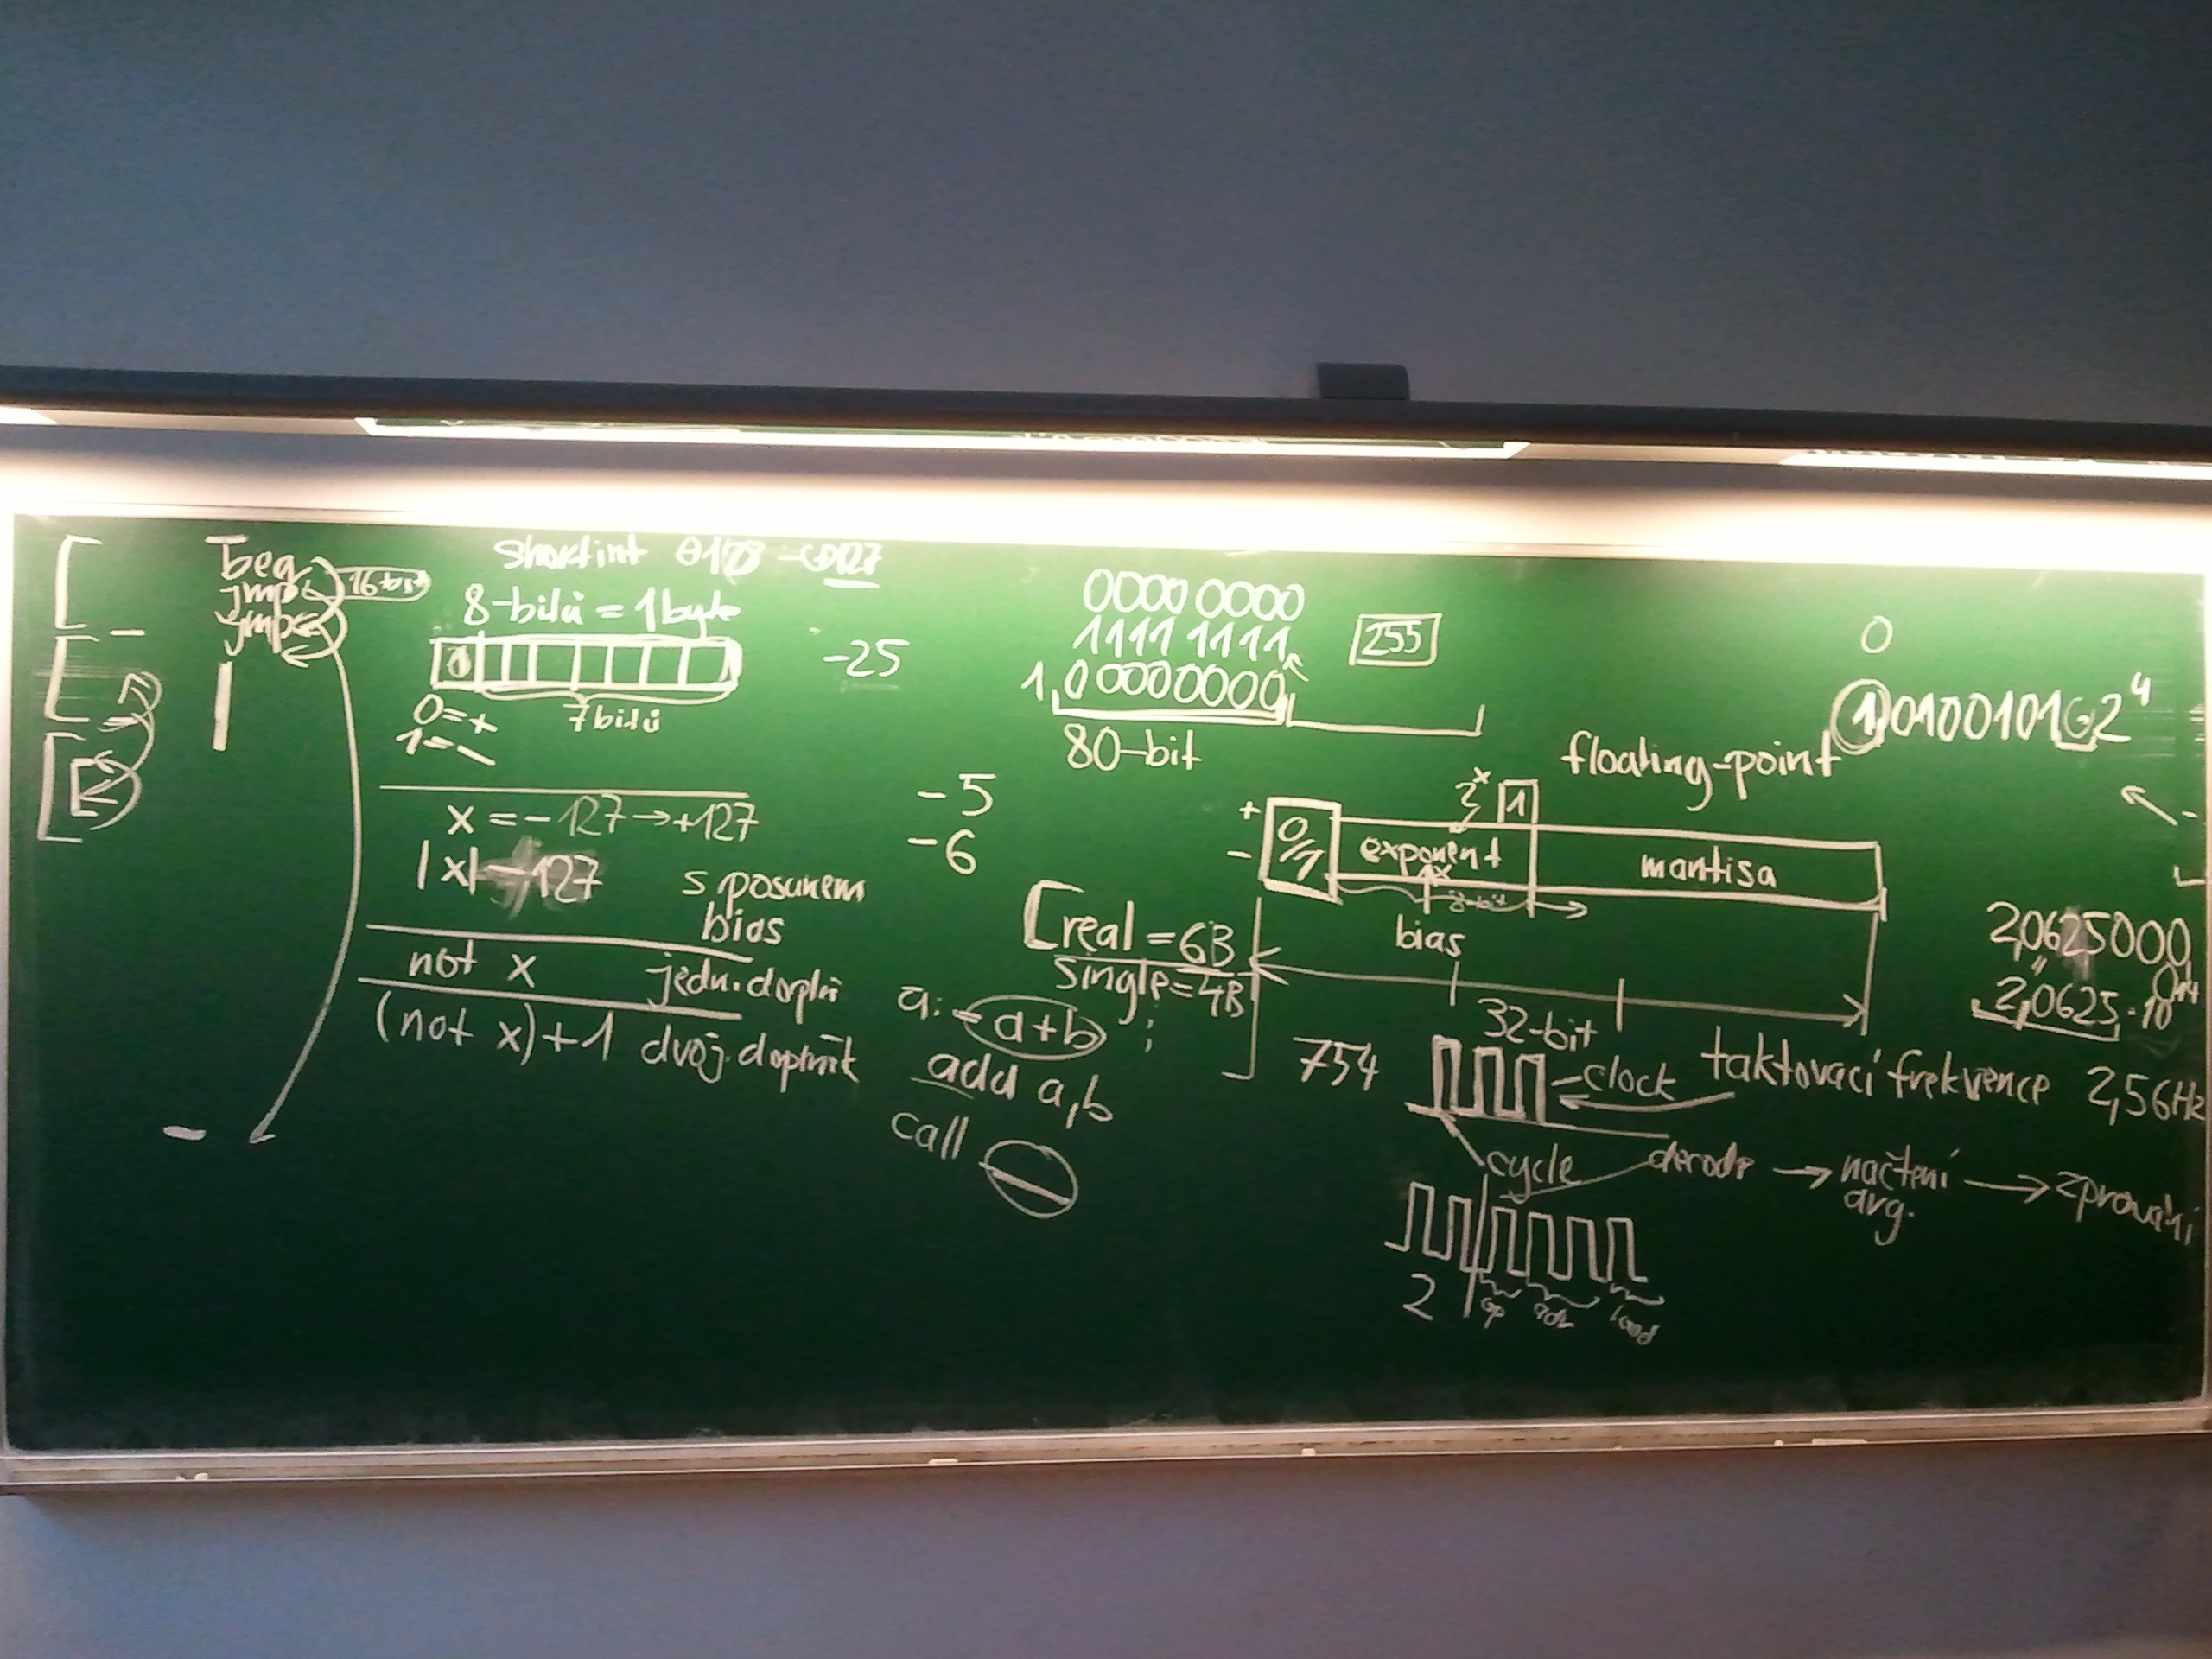 beq
jmp
jmp
16-bit
Shortint -128 - +127
8-bitů = 1 byte
7 bitů
0=+
1=-
-25
x = -127 → +127
|x| - 127
s posunem
bias
not x jedn. dopln
(not x)+1 dvoj. doplněk
-5
-6
0000 0000
1111 1111
1 00000000
255
80-bit
real = 6B
single = 4B
a:=a+b;
add a,b
call
floating-point
+
-
0/1
exponent
2^x
1
mantisa
8-bit
bias
32-bit
754
clock
taktovací frekvence 2,5GHz
cycle
decode → načtení arg. →
2
load
0
2^4
2,0625000
2,0625·10